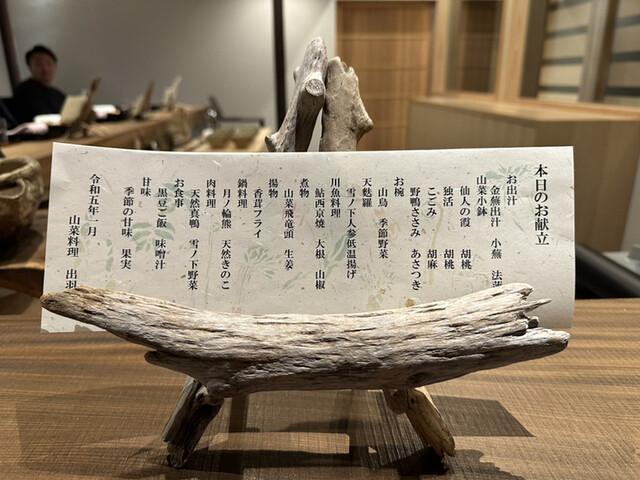 本日のお献立
お出汁
金蕪出汁 小蕪 法蓮
山菜小鉢
仙人の霞 胡桃
独活 胡桃
こごみ 胡麻
野鴨ささみ あさつき
お椀
山鳥 季節野菜
天麩羅
雪ノ下人参低温揚げ
川魚料理
鮎西京焼 大根 山椒
煮物
山菜飛竜頭 生姜
揚物
香茸フライ
鍋料理
月ノ輪熊 天然きのこ
肉料理
天然真鴨 雪ノ下野菜
お食事
黒豆ご飯 味噌汁
甘味
季節の甘味 果実
令和五年一月
山菜料理 出羽